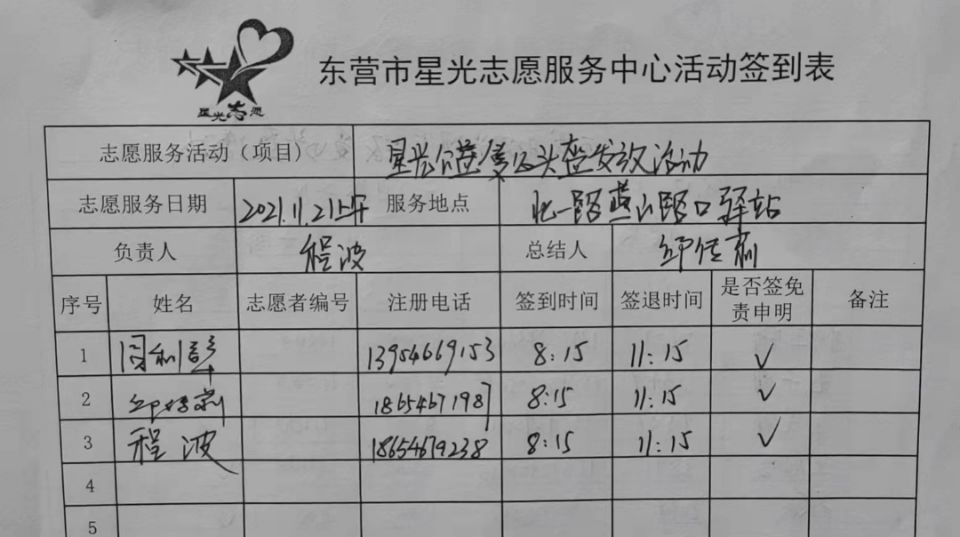 星光志愿
东营市星光志愿服务中心活动签到表
志愿服务活动（项目） 星光公益 头盔发放活动
志愿服务日期 2021.11.21上午 服务地点 北一路燕山路口驿站
负责人 程波 总结人 邱传莉
序号 姓名 志愿者编号 注册电话 签到时间 签退时间 是否签免责申明 备注
1 周利彭 13954669153 8:15 11:15 √
2 18654671987 8:15 11:15 √
3 程波 18654679238 8:15 11:15 √
4
5